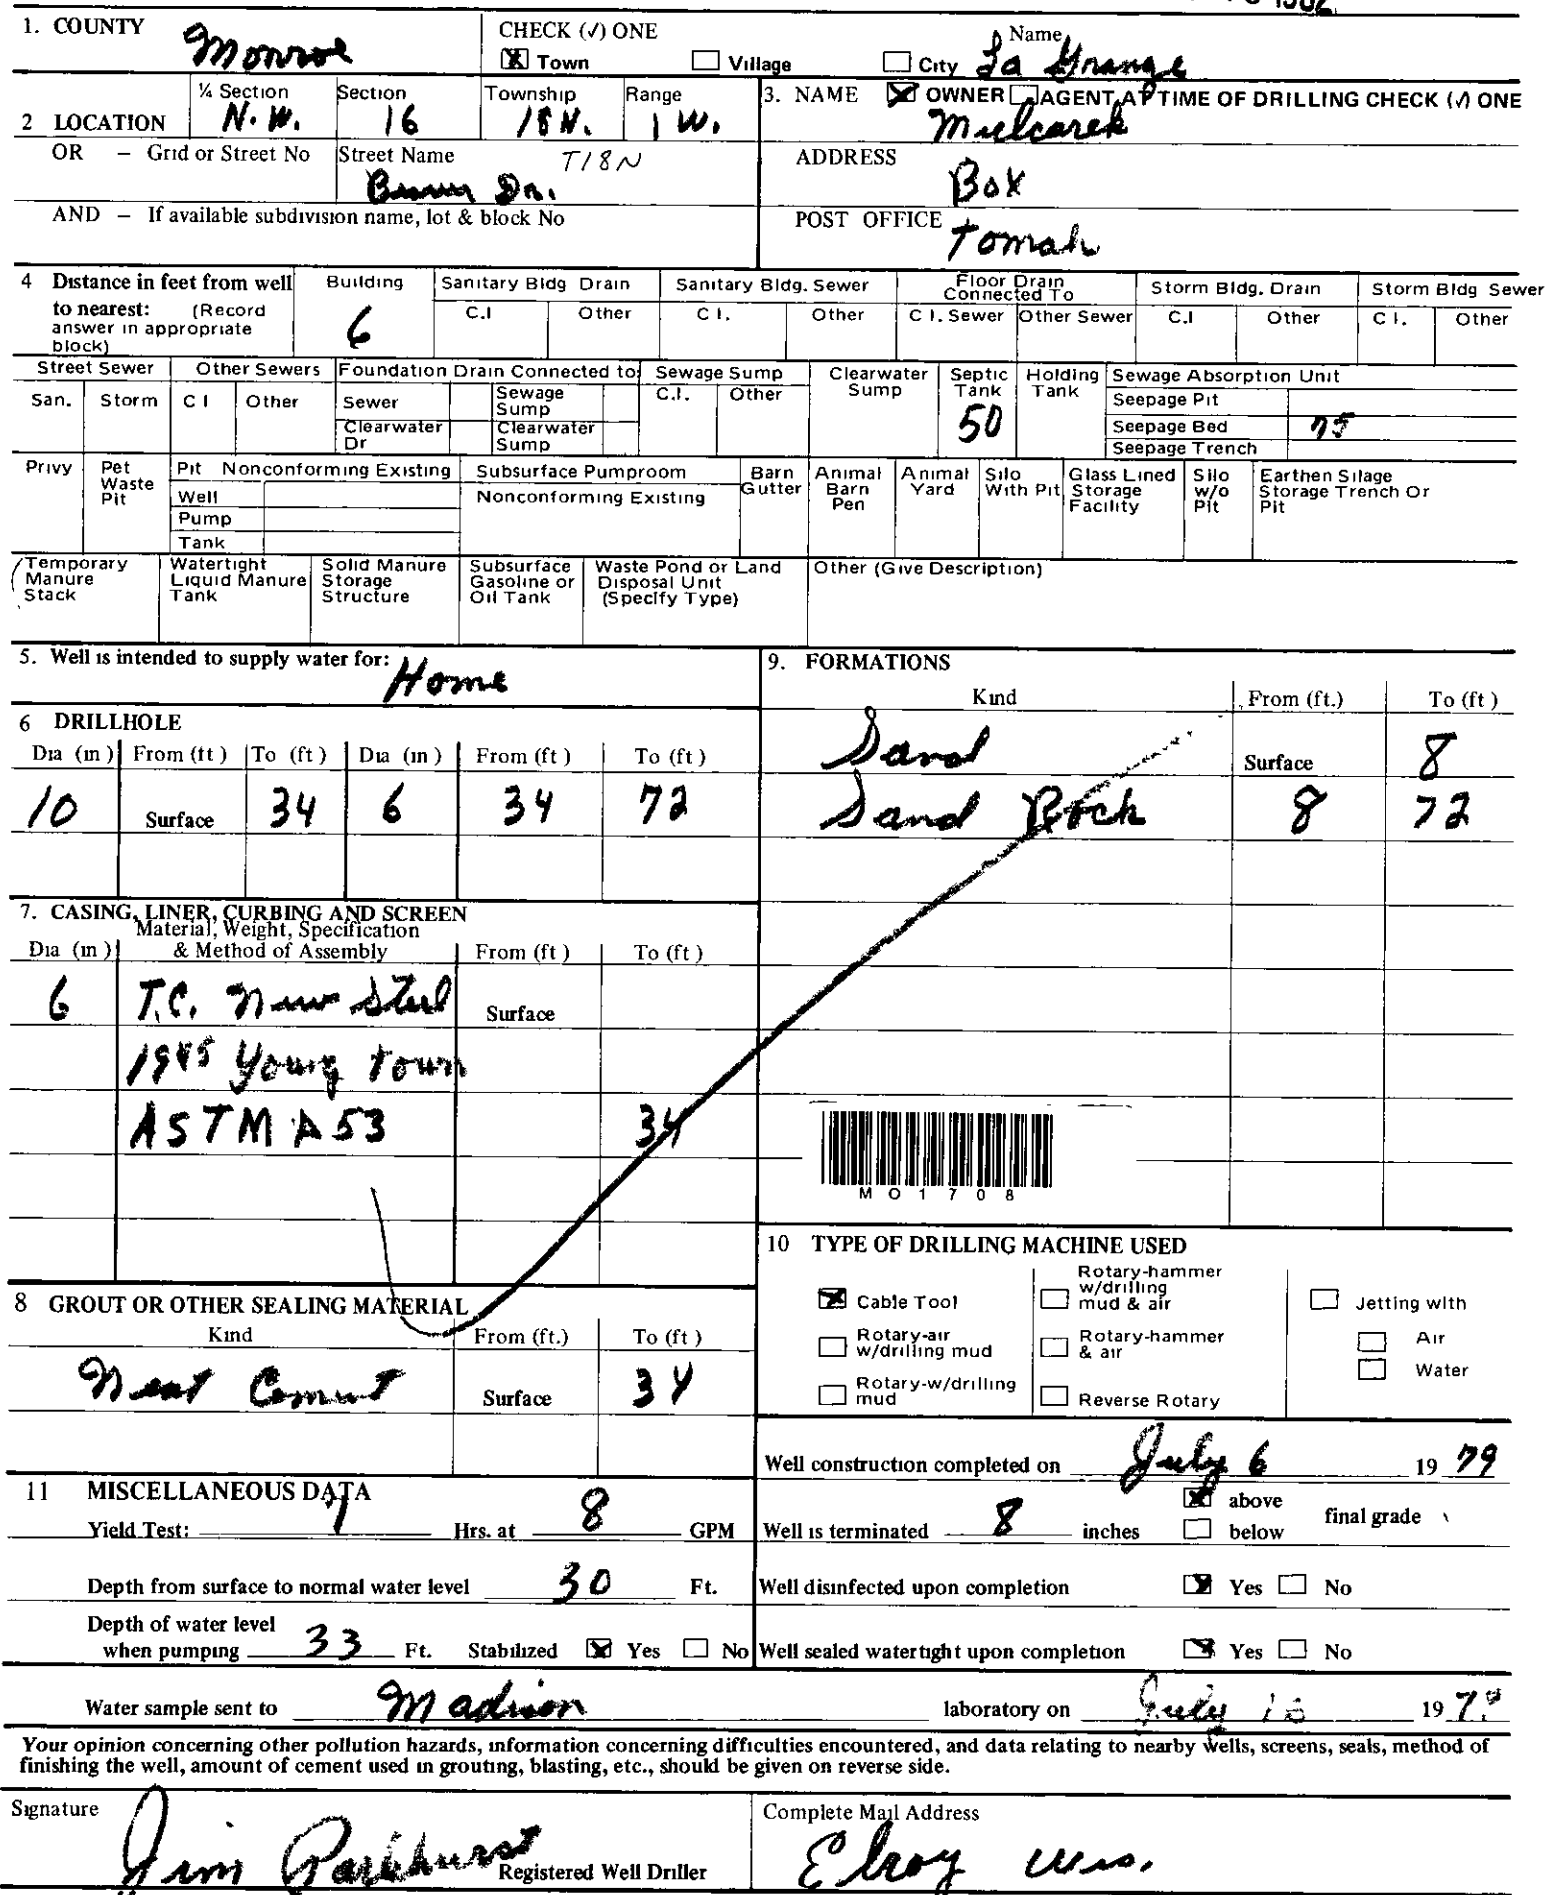 1. COUNTY Monroe CHECK (√) ONE Name
☒ Town ☐ Village ☐ City La Grange
2 LOCATION ¼ Section N.W. Section 16 Township 18 N. Range 1 W.
3. NAME ☒ OWNER ☐ AGENT AT TIME OF DRILLING CHECK (√) ONE
Mulcarek
OR – Grid or Street No Street Name T18N
Dr.
ADDRESS Box
AND – If available subdivision name, lot & block No
POST OFFICE Tomah
4 Distance in feet from well to nearest: (Record answer in appropriate block)
Building 6
Sanitary Bldg Drain C.I Other
Sanitary Bldg. Sewer C I. Other
Floor Drain Connected To C I. Sewer Other Sewer
Storm Bldg. Drain C.I Other
Storm Bldg Sewer C I. Other
Street Sewer San. Storm
Other Sewers C I Other
Foundation Drain Connected to Sewer Clearwater Dr Sewage Sump Clearwater Sump
Sewage Sump C.I. Other
Clearwater Sump
Septic Tank 50
Holding Tank
Sewage Absorption Unit
Seepage Pit
Seepage Bed 75
Seepage Trench
Privy
Pet Waste Pit
Pit Nonconforming Existing
Well
Pump
Tank
Subsurface Pumproom
Nonconforming Existing
Barn Gutter
Animal Barn Pen
Animal Yard
Silo With Pit
Glass Lined Storage Facility
Silo w/o Pit
Earthen Silage Storage Trench Or Pit
Temporary Manure Stack
Watertight Liquid Manure Tank
Solid Manure Storage Structure
Subsurface Gasoline or Oil Tank
Waste Pond or Land Disposal Unit (Specify Type)
Other (Give Description)
5. Well is intended to supply water for: Home
6 DRILLHOLE
Dia (in) From (ft) To (ft) Dia (in) From (ft) To (ft)
10 Surface 34 6 34 72
7. CASING, LINER, CURBING AND SCREEN
Material, Weight, Specification
Dia (in) & Method of Assembly From (ft) To (ft)
6 T.C. New Steel Surface
1945 Young town
ASTM A53 34
8 GROUT OR OTHER SEALING MATERIAL
Kind From (ft.) To (ft)
Neat Cement Surface 34
9. FORMATIONS
Kind From (ft.) To (ft)
Sand Surface 8
Sand Rock 8 72
MO1708
10 TYPE OF DRILLING MACHINE USED
☒ Cable Tool
☐ Rotary-air w/drilling mud
☐ Rotary-w/drilling mud
☐ Rotary-hammer w/drilling mud & air
☐ Rotary-hammer & air
☐ Reverse Rotary
☐ Jetting with
☐ Air
☐ Water
11 MISCELLANEOUS DATA
Yield Test: 1 Hrs. at 8 GPM
Depth from surface to normal water level 30 Ft.
Depth of water level
when pumping 33 Ft. Stabilized ☒ Yes ☐ No
Well construction completed on July 6 1979
Well is terminated 8 inches ☒ above ☐ below final grade
Well disinfected upon completion ☒ Yes ☐ No
Well sealed watertight upon completion ☒ Yes ☐ No
Water sample sent to Madison laboratory on July 197
Your opinion concerning other pollution hazards, information concerning difficulties encountered, and data relating to nearby wells, screens, seals, method of
finishing the well, amount of cement used in grouting, blasting, etc., should be given on reverse side.
Signature Jim Parkhurst Registered Well Driller
Complete Mail Address Elroy Wis.